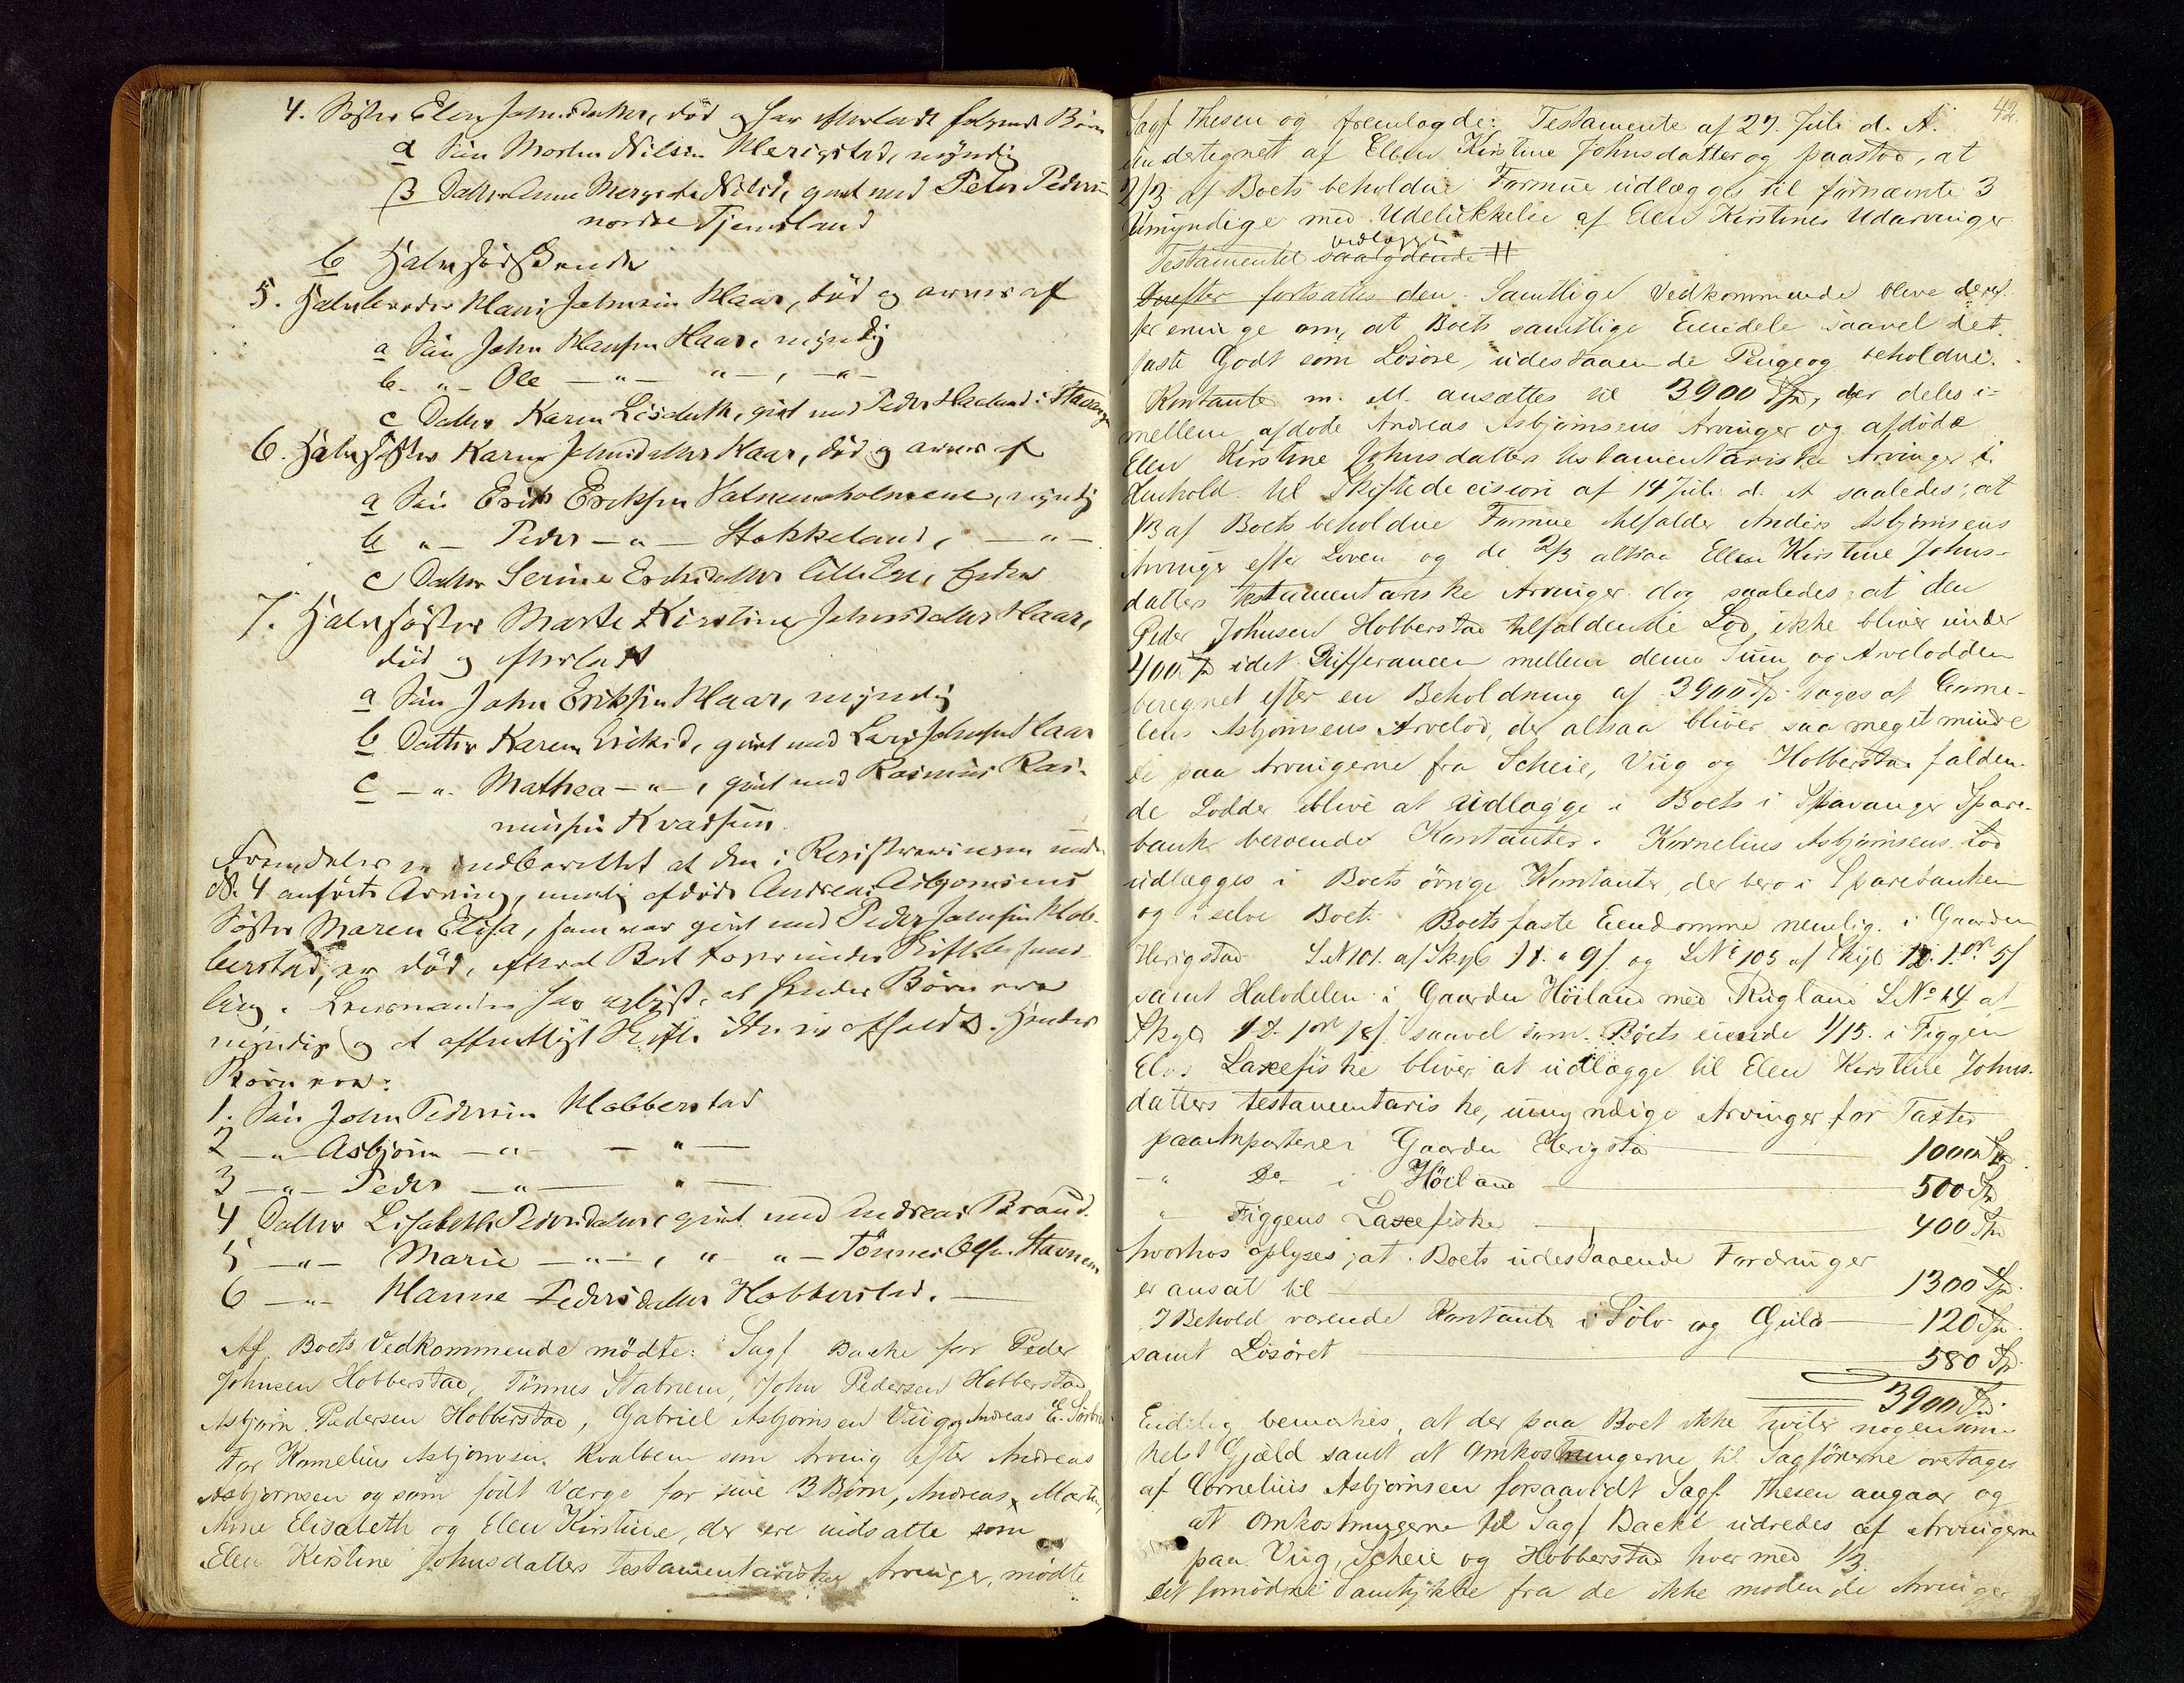 4. Søster Elen Johnsdatter, død og har efterladt følgende Børn
a Søn Morten Nilsen Herigstad, myndig
β Datter Anne Margrete Nilsd, givt med Peder Pedersen
nordre Tjemsland
b Halvsødskende
5. Halvbroder Hans Johnsen Haar, død og arves af
a Søn John Hansen Haar, myndig
b - " - Ole - " - " - , - " -
c Datter Karen Lisabeth, givt med Peder Haaland i Stavanger
6. Halvsøster Karen Johnsdatter Haar, død og arves af
a Søn Erik Eriksen Vatnemsholmene, myndig
b " - Peder - " - Stokkeland, - " -
c Datter Serine Eriksdatter lille Ene,
7. Halvsøster Marte Kirstine Johnsdatter Haar,
død og efterladt
a Søn John Eriksen Haar, myndig
b Datter Karen Eriksd, givt med Lars Johnsen Haar
c - " - Mathea - " - , givt med Rasmus Ras-
mussen Kvassem
Fremdeles er indberettet at den i Registreringen under
No 4 anførte Arving, nemlig afdøde Andreas Asbjørnsens
Søster Maren Elisa, som var givt med Peder Johnsen Hob-
berstad, er død, efterat Boet toges under Skiftebehand-
ling. Lensmanden har oplyst, at hendes Børn ere
myndige og at offentligt Skifte ikke er afholdt. Hendes
Børn ere:
1. Søn John Pedersen Hobberstad
2 - " - Asbjørn - " - - " -
3 - " - Peder - " - " -
4 Datter Lisabeth Pedersdatter, givt med Andreas Braud.
5 - " - Marie - " - , " - " - Tønnes Olsen Stavnem
6 - " - Hanne Pedersdatter Hobberstad. -
Af Boets Vedkommende mødte: Sagf Bache for Peder
Johnsen Hobberstad, Tønnes Stabnem, John Pedersen Hobberstad
Asbjørn Pedersen Hobberstad, Gabriel Asbjørnsen Viig og Andreas E.
for Kornelius Asbjørnsen Kvalbein som Arving efter Andreas
Asbjørnsen og som født Værge for sine 3 Børn, Andreas Martin,
Anne Elisabeth og Elen Kirstine, der ere indsatte som
Elen Kirstine Johnsdatters testamentariske Arvinger, mødte
42.
Sagf Thesen og fremlagde: Testamente af 27. Juli d. A.
undertegnet af Elen Kirstine Johnsdatter og paastod, at
2/3 af Boets beholdne Formue udlægges til førnævnte 3
Umyndige med Udelukkelse af Elen Kirstines Udarvinger
vedlægges
Testamentet saalydende #
Derefter fortsattes den. Samtlige Vedkommende bleve deref-
ter enige om, at Boets samtlige Eiendele saavel det
faste Gods som Løsøre, udestaaende Penge og beholdne
Kontante m. M. ansættes til 3900 Spd, der deles i-
mellem afdøde Andreas Asbjørnsens Arvinger og afdøde
Elen Kirstine Johnsdatters testamentariske Arvinger i
Henhold til Skiftedecision af 14 Juli d. A saaledes; at
1/3 af Boets beholdne Formue tilfalder Anders Asbjørnsens
Arvinger efter Loven og de 2/3 altsaa Ellen Kirstine Johns-
datters testamentariske Arvinger dog saaledes at den
Peder Johnsen Hobberstad tilfaldende Lod, ikke bliver under
400 Spd idet Differancen mellem denne Sum og Arvelodden
beregnet efter en Beholdning af 3900 Spd. tages af Corne-
lius Asbjørnsens Arvelod, der altsaa bliver saa meget mindre
De paa Arvingerne fra Scheie, Viig og Hobberstad falden-
de Lodder blive at udlægge i Boets i Stavanger Spare-
bank beroende Kontanter. Kornelius Asbjørnsens Lod
udlægges i Boets øvrige Kontanter, der bero i Sparebanken
og i selve Boet. Boets faste Eiendomme nemlig i Gaarden
Herigstad L.N 101. af Skyld 1 d. " 9 f. og L.No 105 af Skyld 1 d. 1 ort 5 f
samt Halvdelen i Gaarden Høiland med Rugland L.No 14 af
Skyld 1 d. 1 ort 18 f. saavel som Boets eiende 1/15. i Figgen
Elvs Laxefiske bliver at udlægge til Elen Kirstine Johns-
datters testamentariske, umyndige Arvinger for Taxter
paa Anparterne i Gaarden Herigstad — 1000 Spd.
- " Do i Høiland — 500 Spd
" Figgens Laxefiske — 400 Spd
hvorhos oplyses, at Boets udestaaende Fordringer
er ansat til — 1300 Spd.
I Behold værende Kontanter i Sølv og Guld — 120 Spd.
samt Løsøret — 580 Spd
3900 Spd.
Endelig bemærkes, at der paa Boet ikke hviler nogensom-
helst Gjæld samt at Omkostningerne til Sagførerne overtages
af Cornelius Asbjørnsen forsaavidt Sagf. Thesen angaar og
at Omkostningerne til Sagf Bache udredes af Arvingerne
paa Viig, Scheie og Hobberstad hver med 1/3.
Det fornødne Samtykke fra de ikke mødende Arvinger